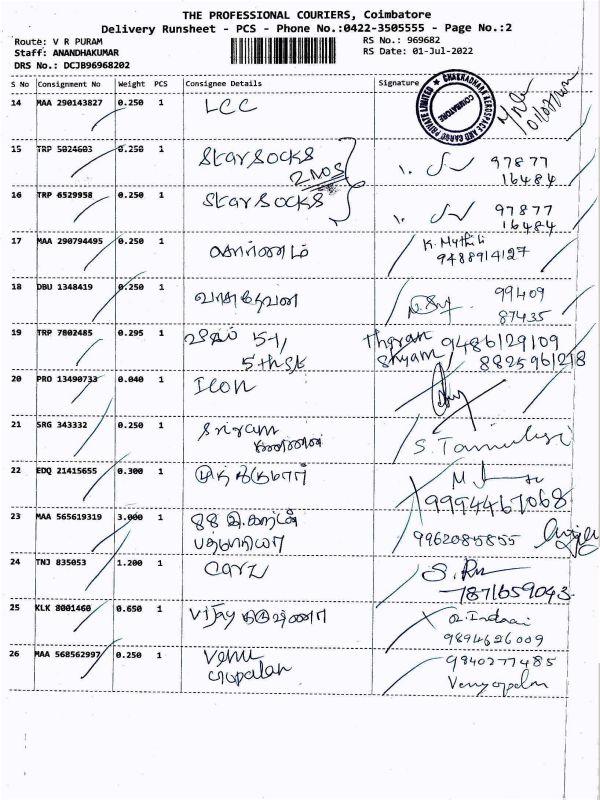 THE PROFESSIONAL COURIERS, Coimbatore
Delivery Runsheet - PCS - Phone No.:0422-3505555 - Page No.:2
Route: V R PURAM
RS No.: 969682
Staff: ANANDHAKUMAR
RS Date: 01-Jul-2022
DRS No.: DCJB96968202
S No Consignment No Weight PCS Consignee Details Signature
14 MAA 290143827 0.250 1 LCC
CHAKRADHARA AEROSPACE AND CARGO PRIVATE LIMITED
COIMBATORE
15 TRP 5024603 0.250 1 Star Socks 97877
2 NOS 16484
16 TRP 6529958 0.250 1 Star Socks 97877
16484
17 MAA 290794495 0.250 1 K. Mythili
9488914127
18 DBU 1348419 0.250 1 வாசுதேவன் 99409
87435
19 TRP 7802485 0.295 1 51, Tharan 9486129109
5th St Shyam 8825961218
20 PRO 13490733 0.040 1 Icon
21 SRG 343332 0.250 1 Sriram
22 EDQ 21415655 0.300 1 9994467068
23 MAA 565619319 3.000 1 88
9962085855
24 TNJ 835053 1.200 1 Carz
7871659043
25 KLK 8001460 0.650 1 Vijay
9894626009
26 MAA 568562997 0.250 1 Venu 9840277485
Gopalan Venugopalan